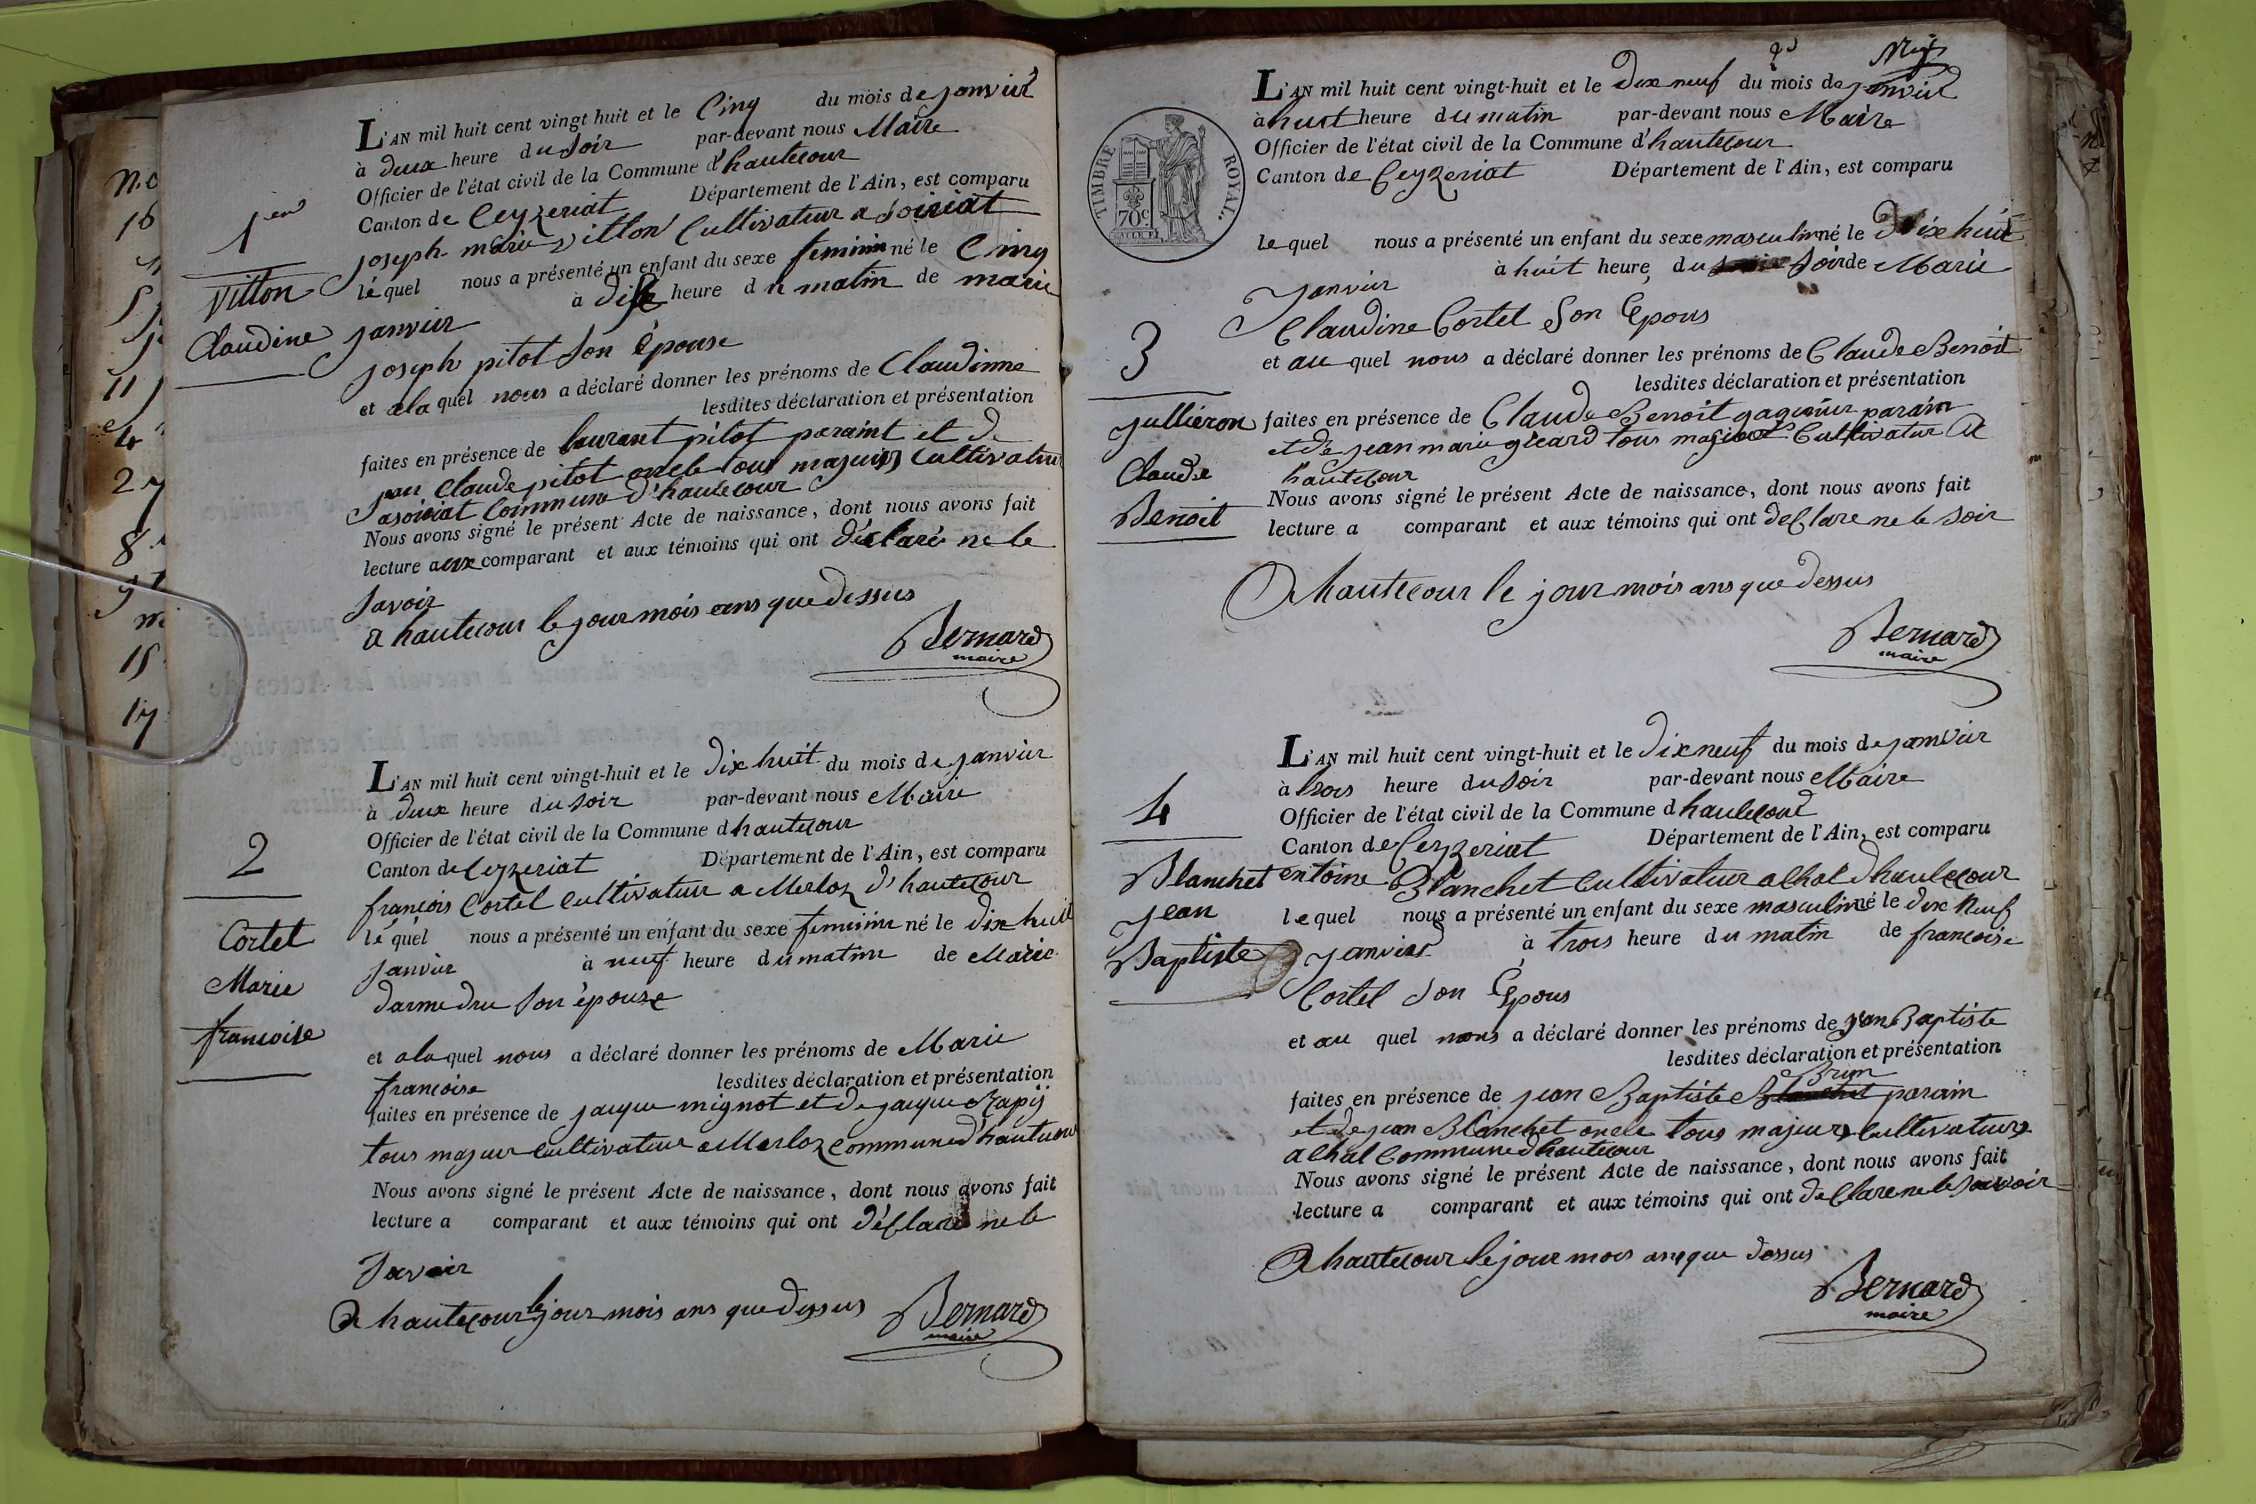 1er
Vitton
Claudine
L'AN mil huit cent vingt huit et le Cinq du mois de janvier
à deux heure du soir par-devant nous Maire
Officier de l'état civil de la Commune d'hautecour
Canton de Ceyzeriat Département de l'Ain, est comparu
joseph marie vitton Cultivateur a soiriat
lé quel nous a présenté un enfant du sexe feminin né le Cinq
janvier à dix heure du matin de marie
joseph pitot son épouse
et ala quel nous a déclaré donner les prénoms de Claudinne
lesdites déclaration et présentation
faites en présence de laurant pitot paraint et de
jean Claude pitot oncle tous majeurs Cultivateur
asoiriat Commune d'hautecour
Nous avons signé le présent Acte de naissance, dont nous avons fait
lecture aux comparant et aux témoins qui ont déclaré ne le
savoir
a hautecour le jour mois ans que dessus
Bernard
maire
2
Cortet
Marie
francoise
L'AN mil huit cent vingt-huit et le dix huit du mois de janvier
à deux heure du soir par-devant nous Maire
Officier de l'état civil de la Commune d hautecour
Canton de Ceyzeriat Département de l'Ain, est comparu
francois Cortet Cultivateur a Merloz d'hautecour
lé quel nous a présenté un enfant du sexe feminin né le dix huit
janvier à neuf heure du matin de Marie
darmedru son épouze
et ala quel nous a déclaré donner les prénoms de Marie
francoise lesdites déclaration et présentation
faites en présence de jacque mignot et de jacque Rapij
tous majeur Cultivateur a Merloz commune d'hautecour
Nous avons signé le présent Acte de naissance, dont nous avons fait
lecture a comparant et aux témoins qui ont déClaré ne le
Savoir
a hautecour le jour mois ans que dessus
Bernard
maire
TIMBRE ROYAL
70c
L'AN mil huit cent vingt-huit et le dix neuf du mois de janvier
à huit heure du matin par-devant nous Maire
Officier de l'état civil de la Commune d'hautecour
Canton de Ceyzeriat Département de l'Ain, est comparu
le quel nous a présenté un enfant du sexe masculin né le dix huit
janvier à huit heure du soir de Marie
Claudine Cortet Son Epous
3
jullieron
Claude
Benoit
et au quel nous a déclaré donner les prénoms de Claude Benoit
lesdites déclaration et présentation
faites en présence de Claude Benoit parain
et de jean marie tous majeur Cultivatur a
hautecour
Nous avons signé le présent Acte de naissance, dont nous avons fait
lecture a comparant et aux témoins qui ont deClare ne le soir
A hautecour le jour mois ans que dessus
Bernard
maire
4
Blanchet
jean
Baptiste
L'AN mil huit cent vingt-huit et le dix neuf du mois de janvier
à trois heure du soir par-devant nous Maire
Officier de l'état civil de la Commune d hautecour
Canton de Ceyzeriat Département de l'Ain, est comparu
entoine Blanchet Cultivateur a Chal d hautecour
le quel nous a présenté un enfant du sexe masculin né le dix neuf
janvier à trois heure du matin de francoise
Cortet son Epous
et au quel nous a déclaré donner les prénoms de jean Baptiste
lesdites déclaration et présentation
Brun
faites en présence de jean Baptiste Blanchet parain
et de jean Blanchet oncle tous majeurs Cultivateurs
a Chal Commune d hautecour
Nous avons signé le présent Acte de naissance, dont nous avons fait
lecture a comparant et aux témoins qui ont deClare ne le savoir
A hautecour le jour mois ans que dessus
Bernard
maire